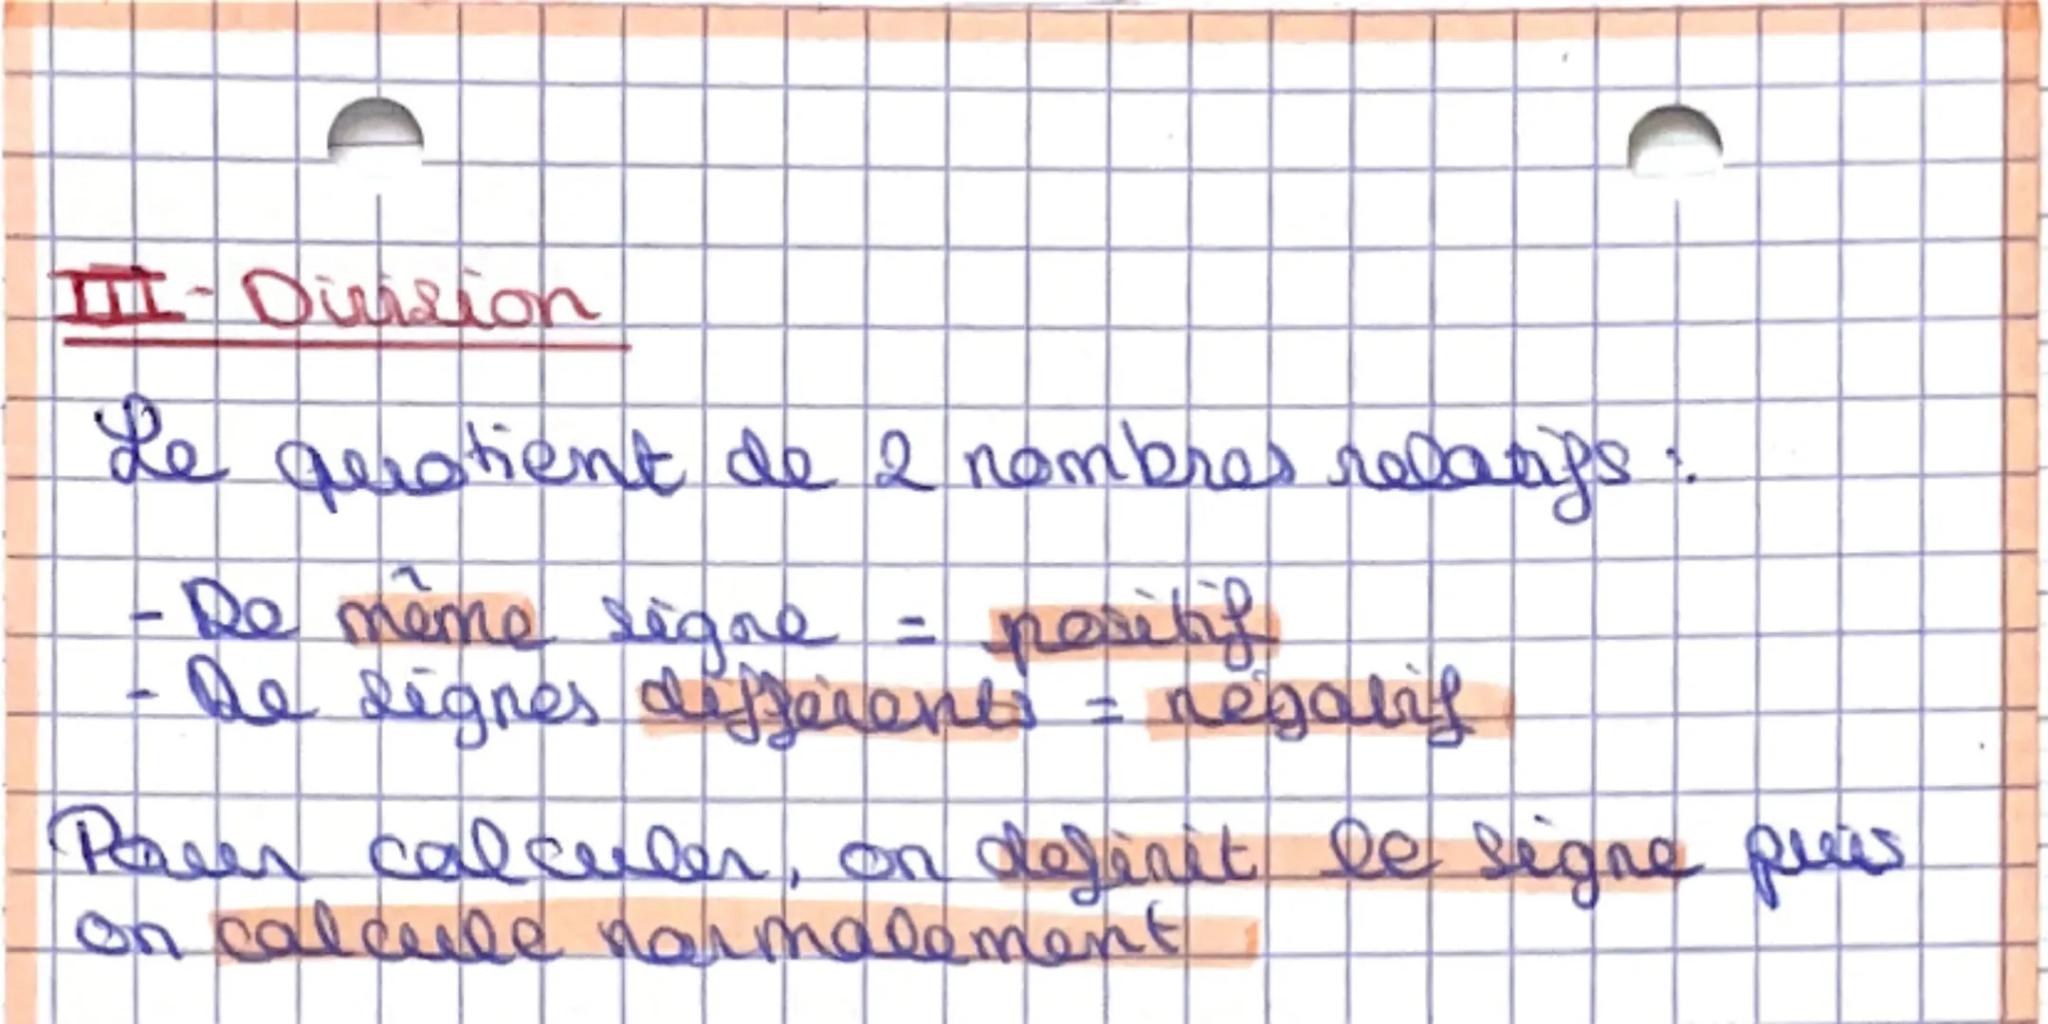 III - Division
Le quotient de 2 nombres relatifs :
- De même signe = positif
- De signes différents = négatif
Pour calculer, on définit le signe puis
on calcule normalement